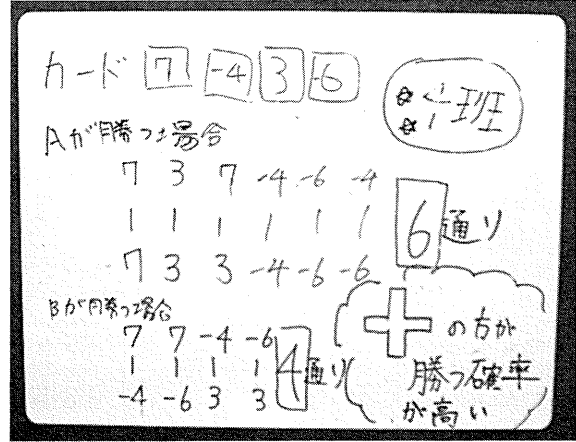 カード 7 -4 3 -6
1班
Aが勝つ場合
7 3 7 -4 -6 -4
| | | | | |
7 3 3 -4 -6 -6
6通り
Bが勝つ場合
7 7 -4 -6
| | | |
-4 -6 3 3
4通り
+の方が
勝つ確率
が高い